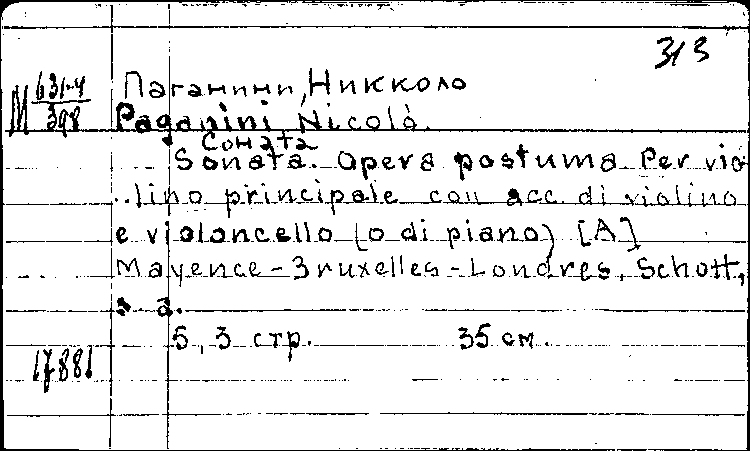 313
М 631-4/398
Паганини, Никколо
Paganini, Nicolò.
Соната
Sonata. Opera postuma Per vio-
lino principale con acc. di violino
e violoncello (o di piano) [A]
Mayence-Bruxelles-Londres, Schott,
s. a.
5, 3 стр. 35 см.
17881